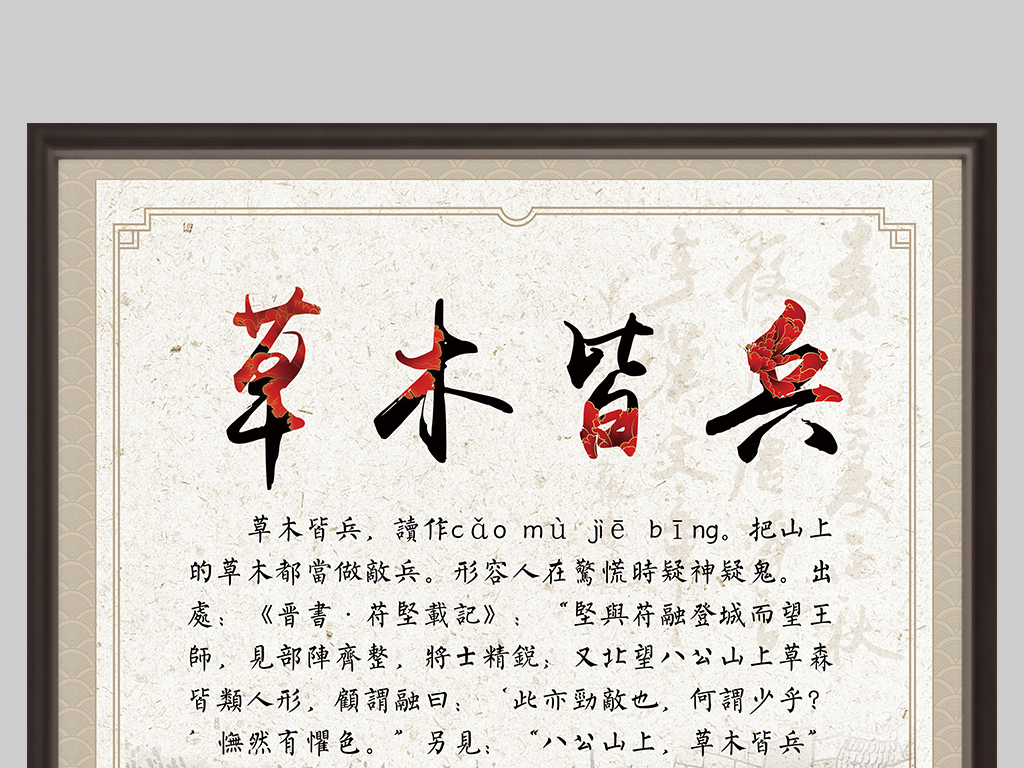 草木皆兵
草木皆兵，讀作cǎo mù jiē bīng。把山上
的草木都當做敵兵。形容人在驚慌時疑神疑鬼。出
處：《晋書·苻堅載記》：“堅與苻融登城而望王
師，見部陣齊整，將士精銳；又北望八公山上草森
皆類人形，顧謂融曰：‘此亦勁敵也，何謂少乎？
’憮然有懼色。”另見：“八公山上，草木皆兵”